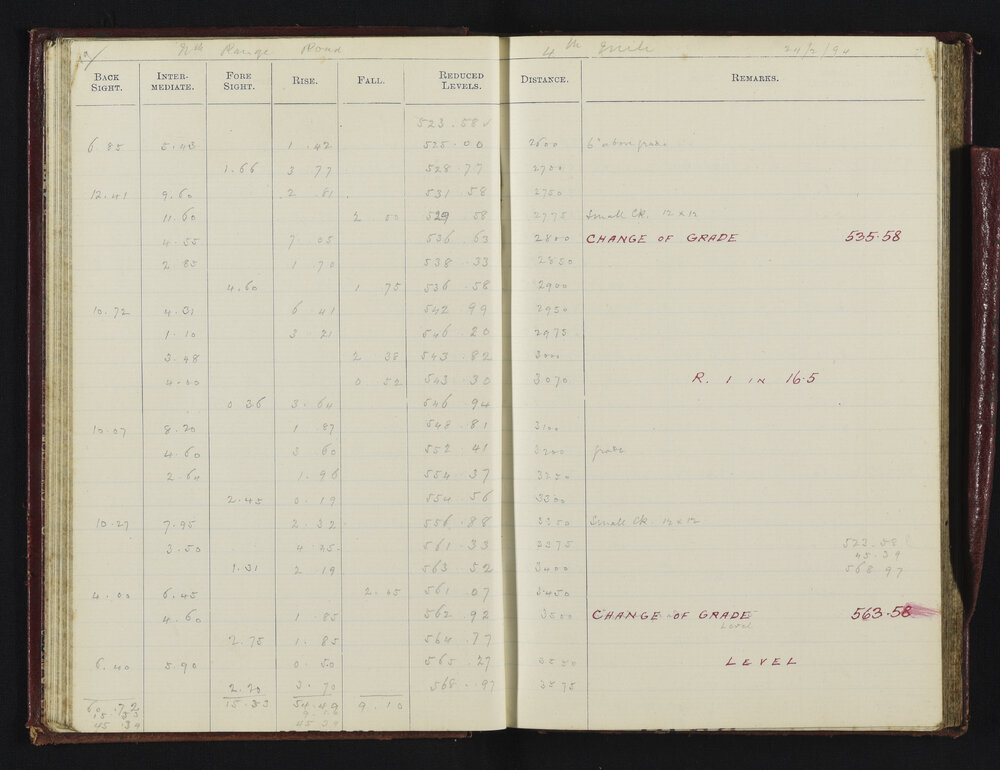 Range Road 4th 24/2/94
BACK SIGHT. INTER-MEDIATE. FORE SIGHT. RISE. FALL. REDUCED LEVELS. DISTANCE. REMARKS.
523.58
6.85 5.43 1.42 525.00 2600 6" above grade
1.66 3.77 528.77 2700
12.41 9.60 2.81 531.58 2750
11.60 2.00 529.58 2775 Small Ck. 12 x 12
4.55 7.05 536.63 2800 CHANGE OF GRADE 535.58
2.85 1.70 538.33 2850
4.60 1.75 536.58 2900
10.72 4.31 6.41 542.99 2950
1.10 3.21 546.20 2975
3.48 2.38 543.82 3000
4.00 0.52 543.30 3070 R. 1 IN 16.5
0.36 3.64 546.94
10.07 8.20 1.87 548.81 3100
4.60 3.60 552.41 3200 grade
2.64 1.96 554.37 3250
2.45 0.19 554.56 3300
10.27 7.95 2.32 556.88 3350 Small Ck. 12 x 12
3.50 4.45 561.33 3375 523.58
45.39
1.31 2.19 563.52 3400 568.97
4.00 6.45 2.45 561.07 3450
4.60 1.85 562.92 3500 CHANGE OF GRADE 563.58
Level
2.75 1.85 564.77
6.40 5.90 0.50 565.27 3550 LEVEL
2.20 3.70 568.97 3575
60.72 15.33 54.49 9.10
15.33 9.10
45.39 45.39